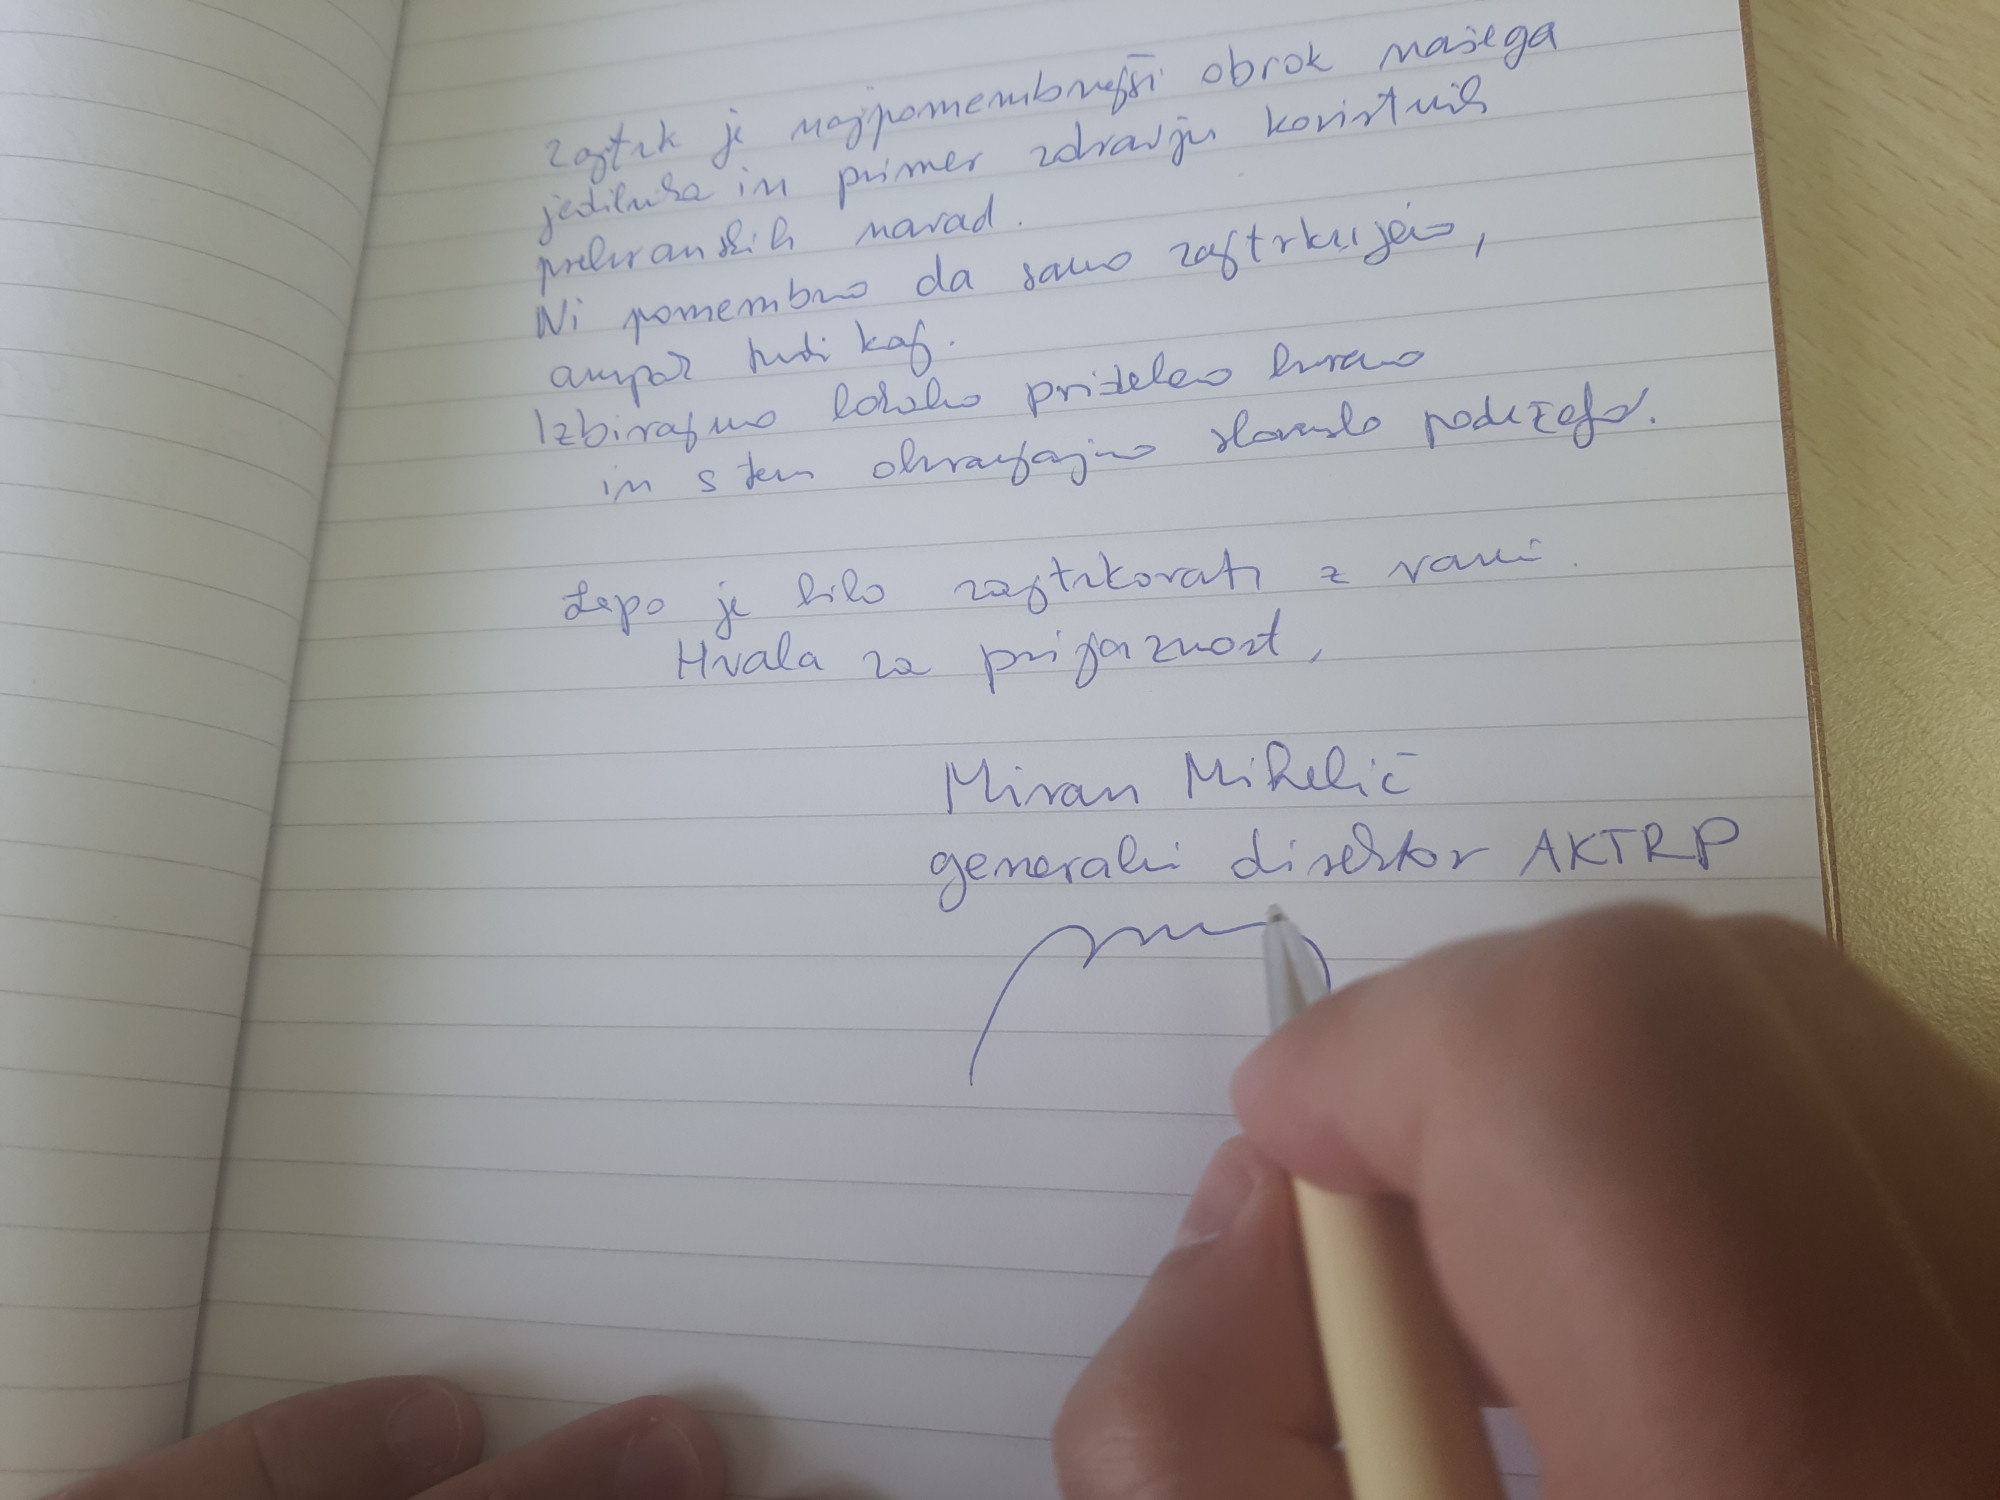 Zajtrk je najpomembnejši obrok našega
jedilnika in primer zdravju koristnih
prehranskih navad.
Ni pomembno da samo zajtrkujemo,
ampak tudi kaj.
Izbirajmo lokalno pridelano hrano
in s tem ohranjajmo slovensko podeželje.
Lepo je bilo zajtrkovati z vami.
Hvala za prijaznost,
Miran Mihelič
generalni direktor AKTRP